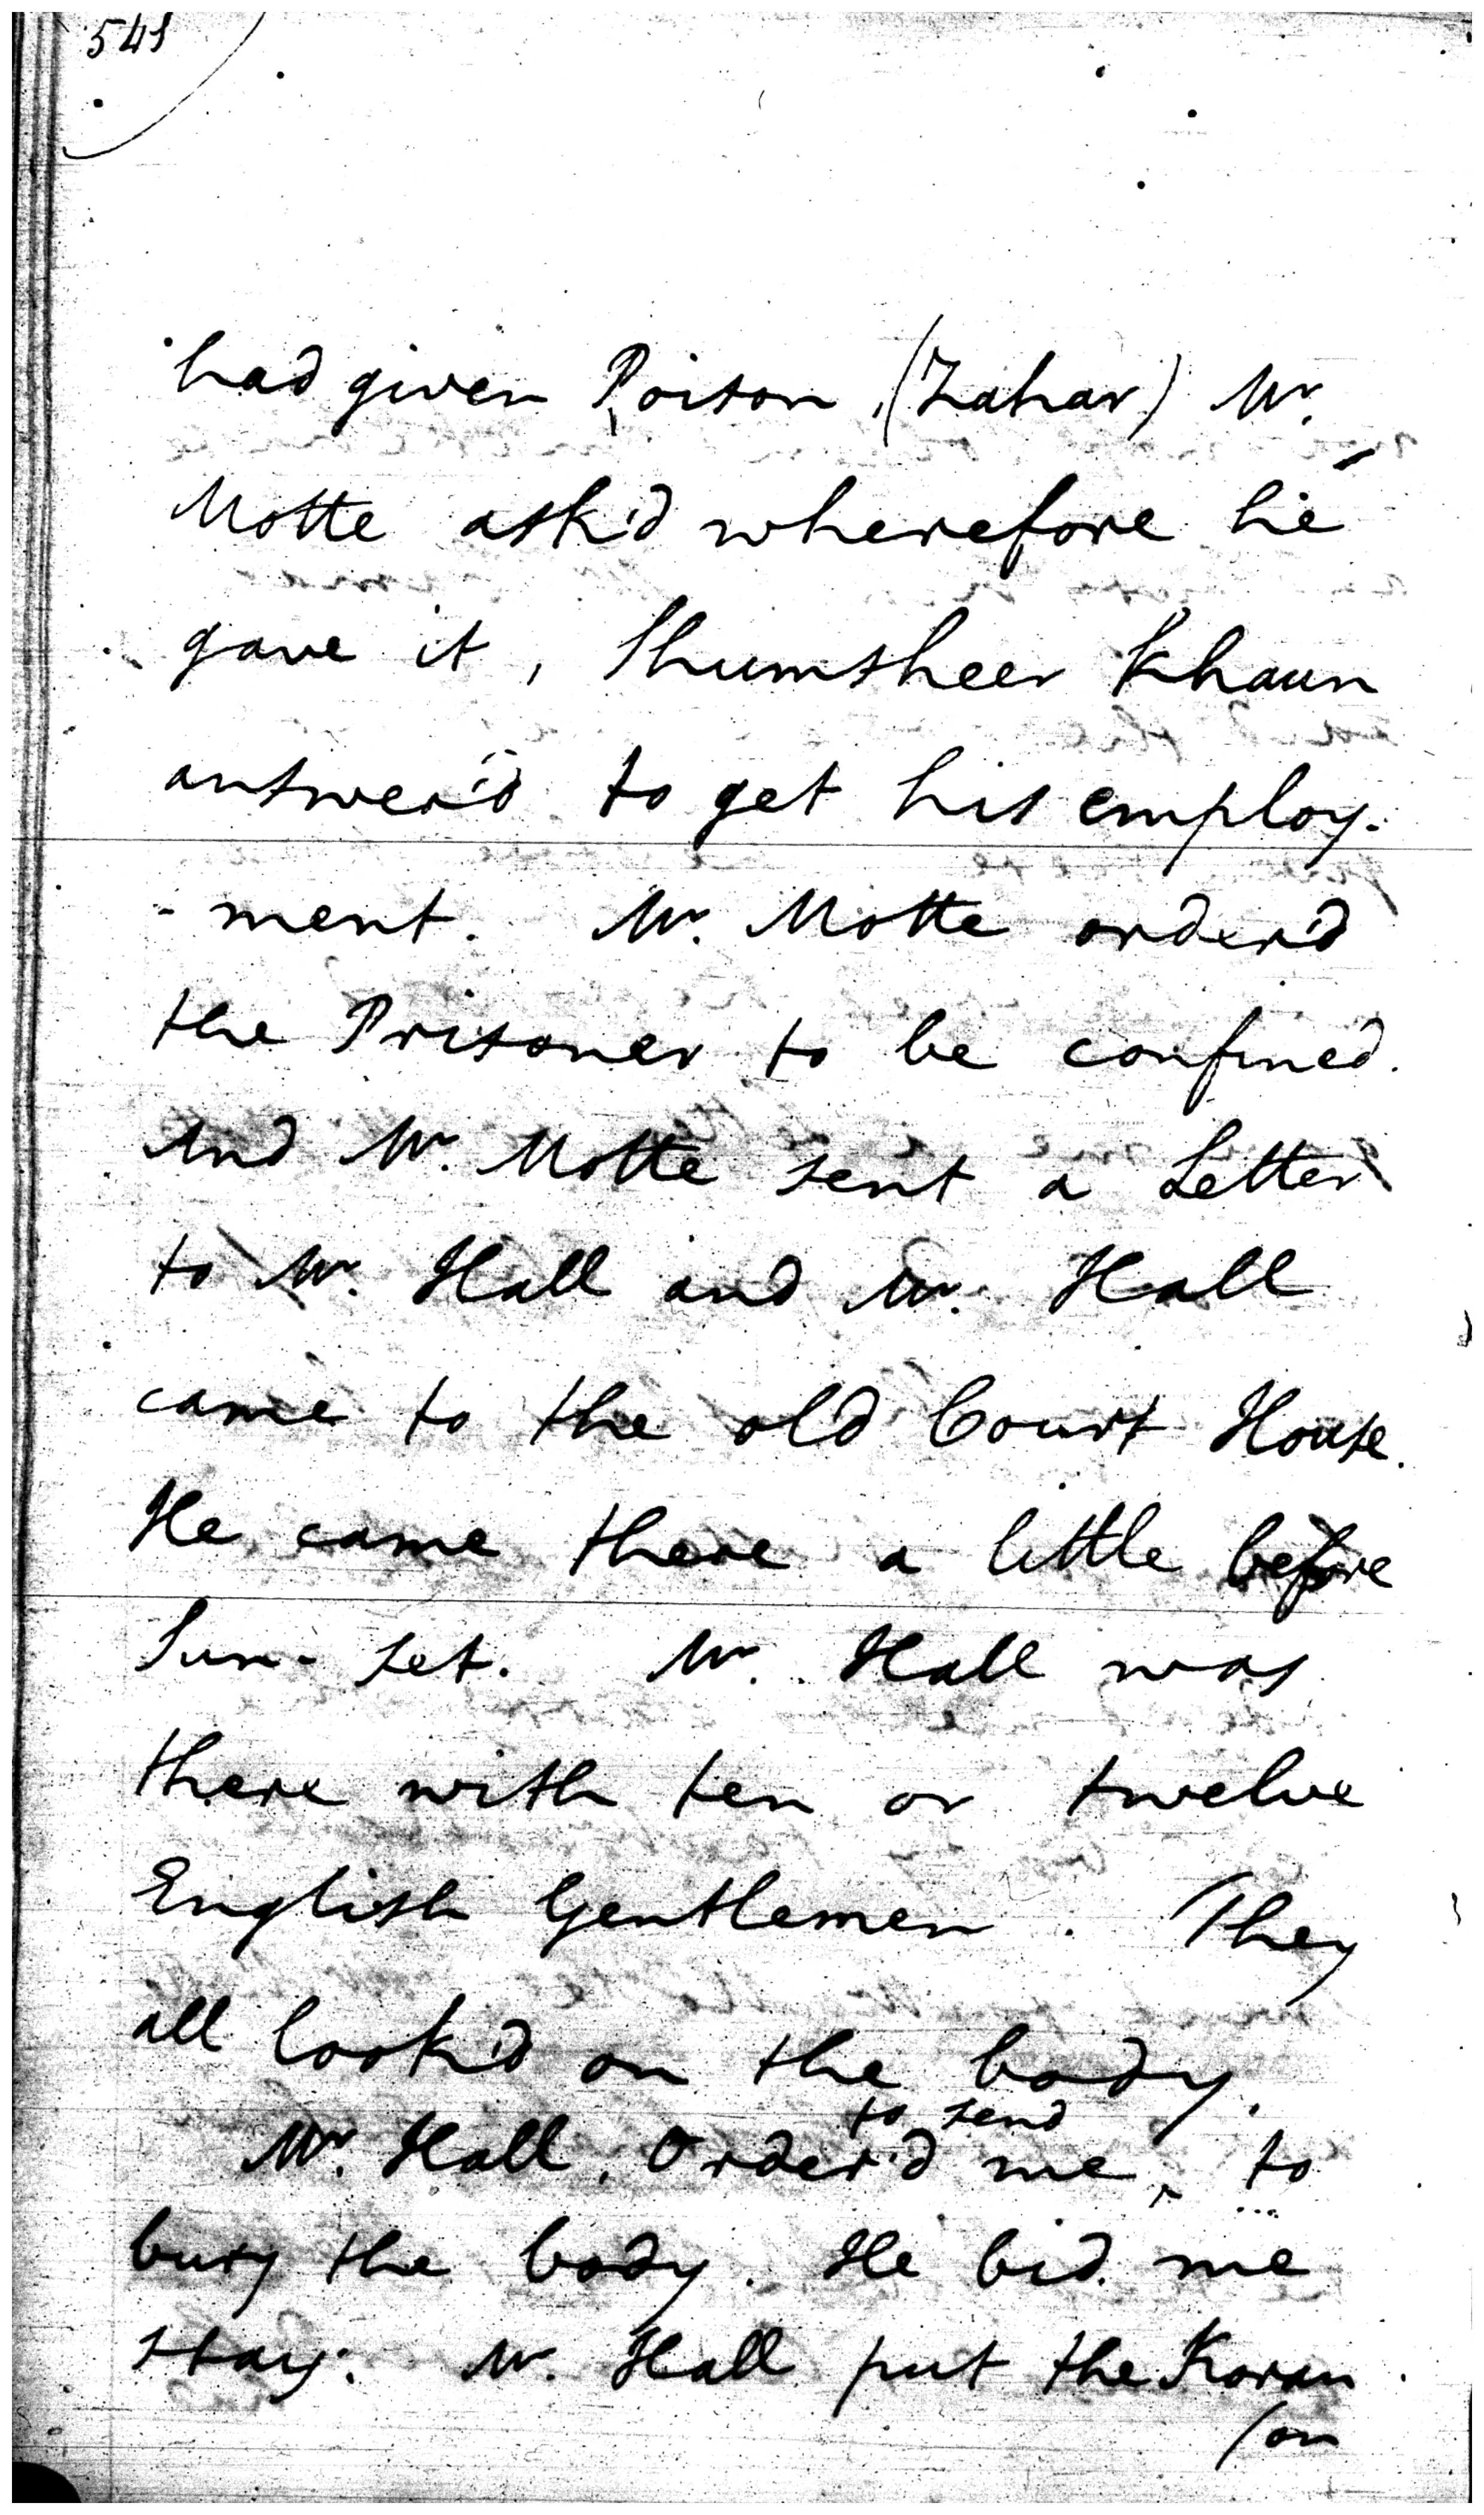 541
had given Poison (Zahar) Mr.
Motte ask'd wherefore he
gave it, Shumsheer Khaun
answer'd to get his employ-
-ment. Mr. Motte order'd
the Prisoner to be confined.
And Mr. Motte sent a Letter
to Mr. Hall and Mr. Hall
came to the old Court House.
He came there a little before
Sun-set. Mr. Hall was
there with ten or twelve
English Gentlemen. They
all look'd on the body.
to send
Mr. Hall. Order'd me ^ to
bury the body. He bid me
stay. Mr. Hall put the Koran
(on